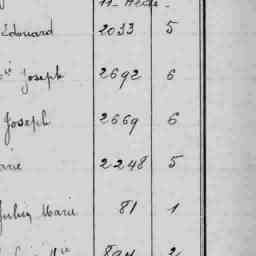 Edouard 2033 5
Joseph 2692 6
Joseph 2669 6
2248 5
Julien Marie 81 1